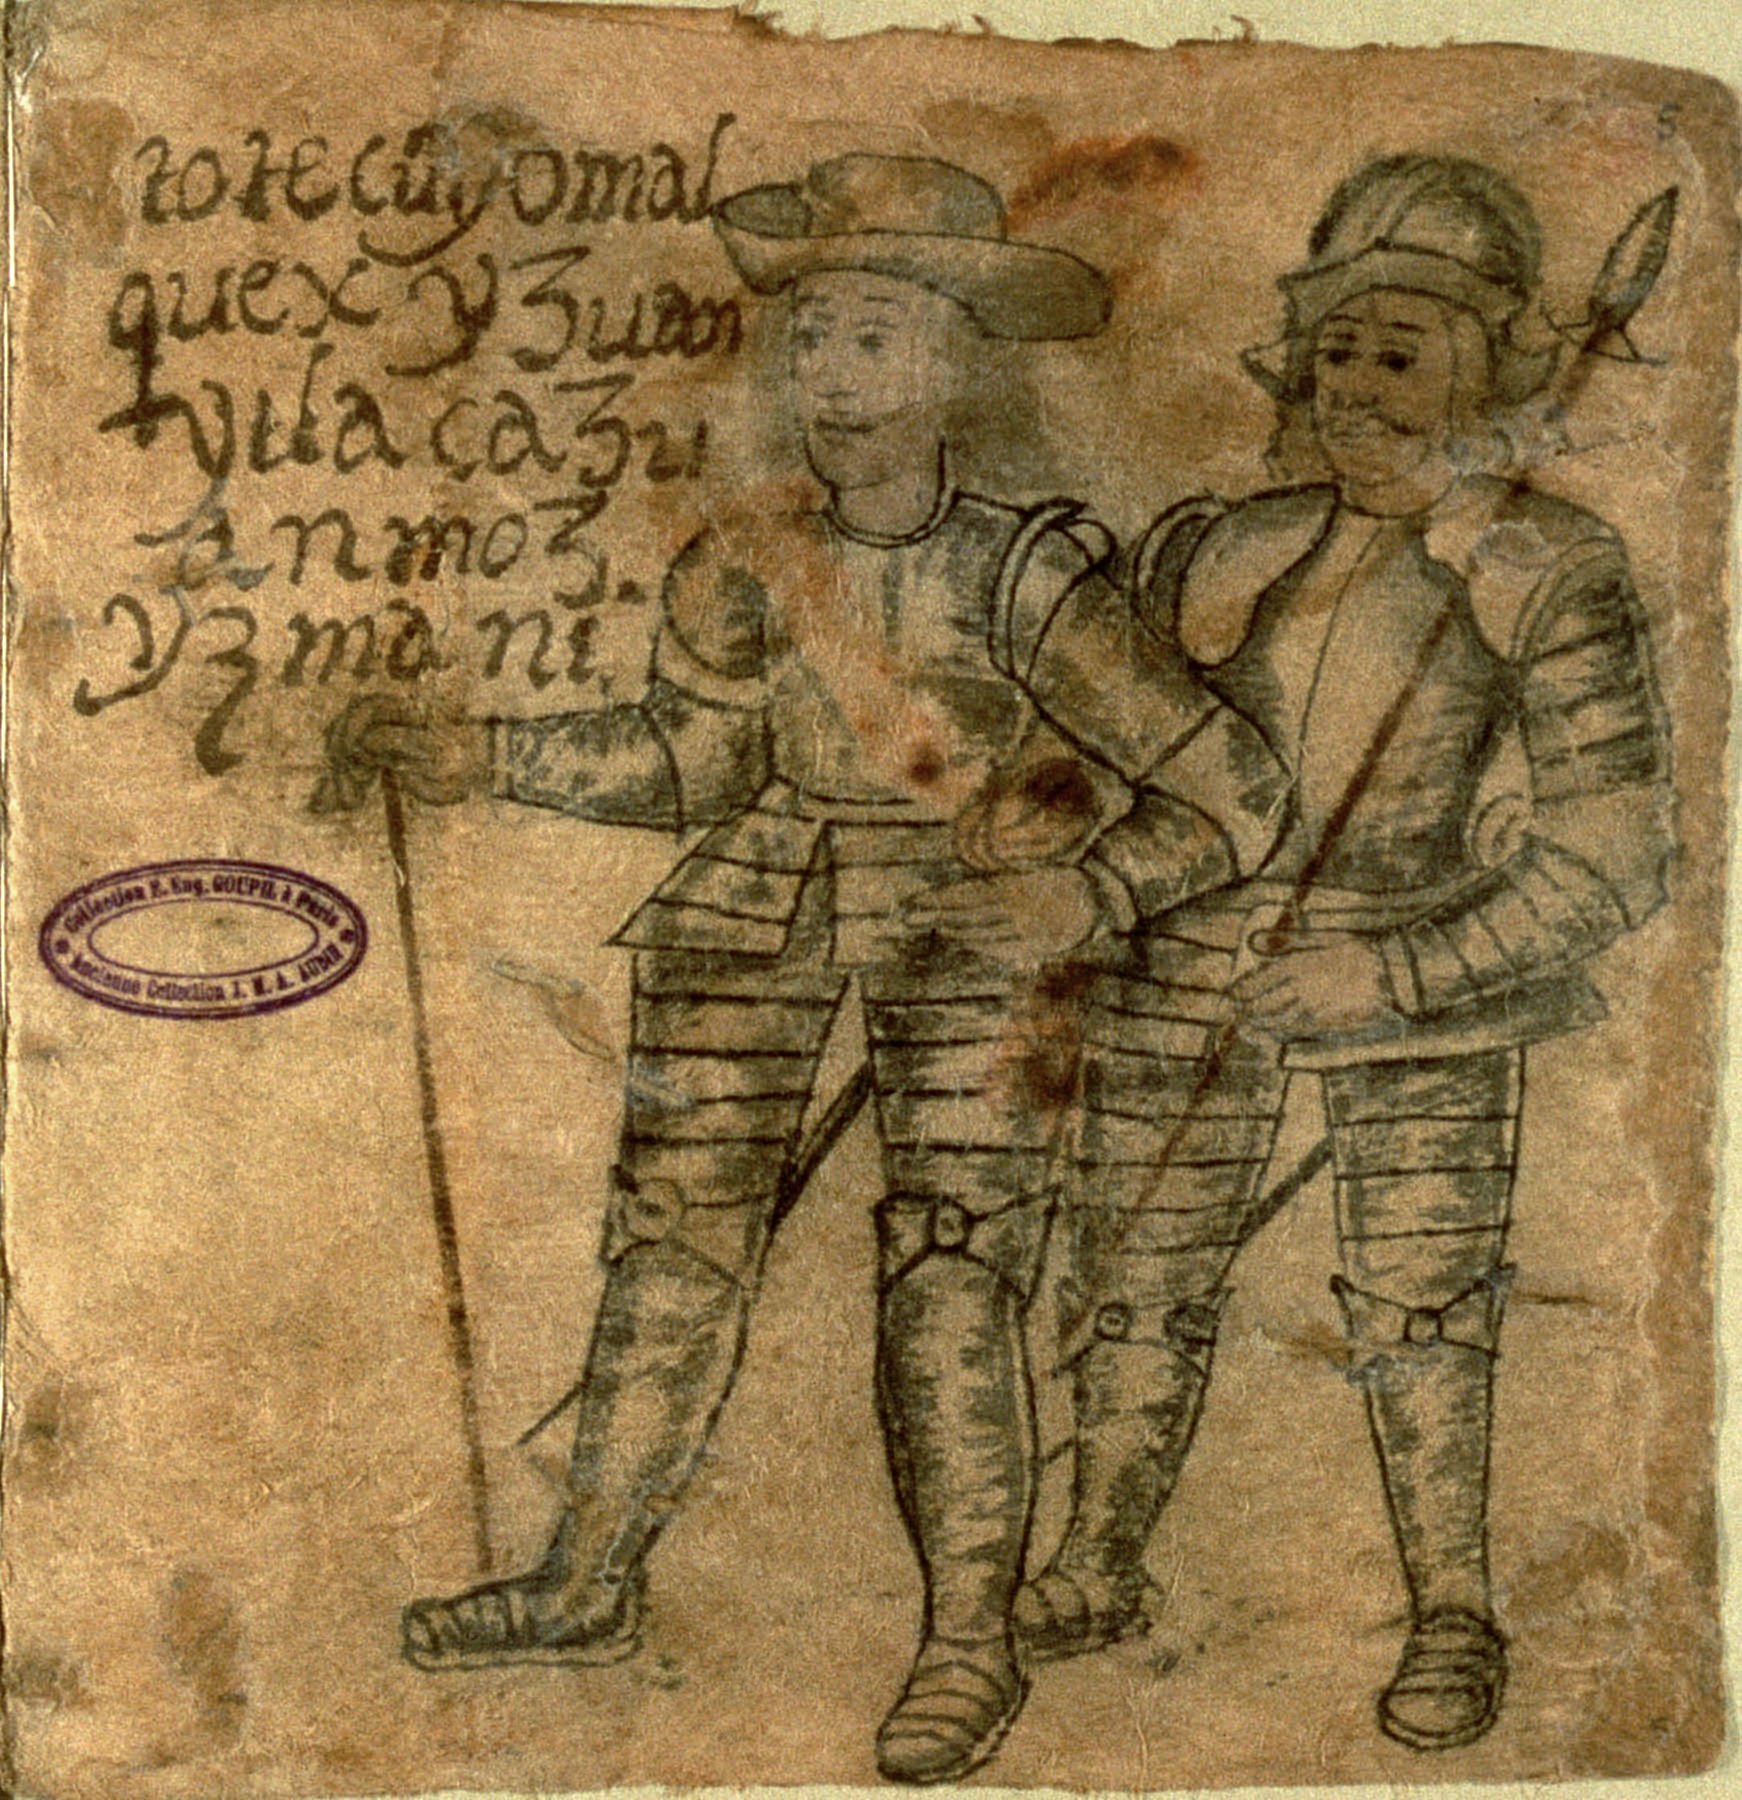 totecuyomal
quex yʒuan
yula çaʒu
anmoʒ.
yʒmani.
5
Collection E. Eug. GOUPIL à Paris
Ancienne Collection J. M. A. AUBIN